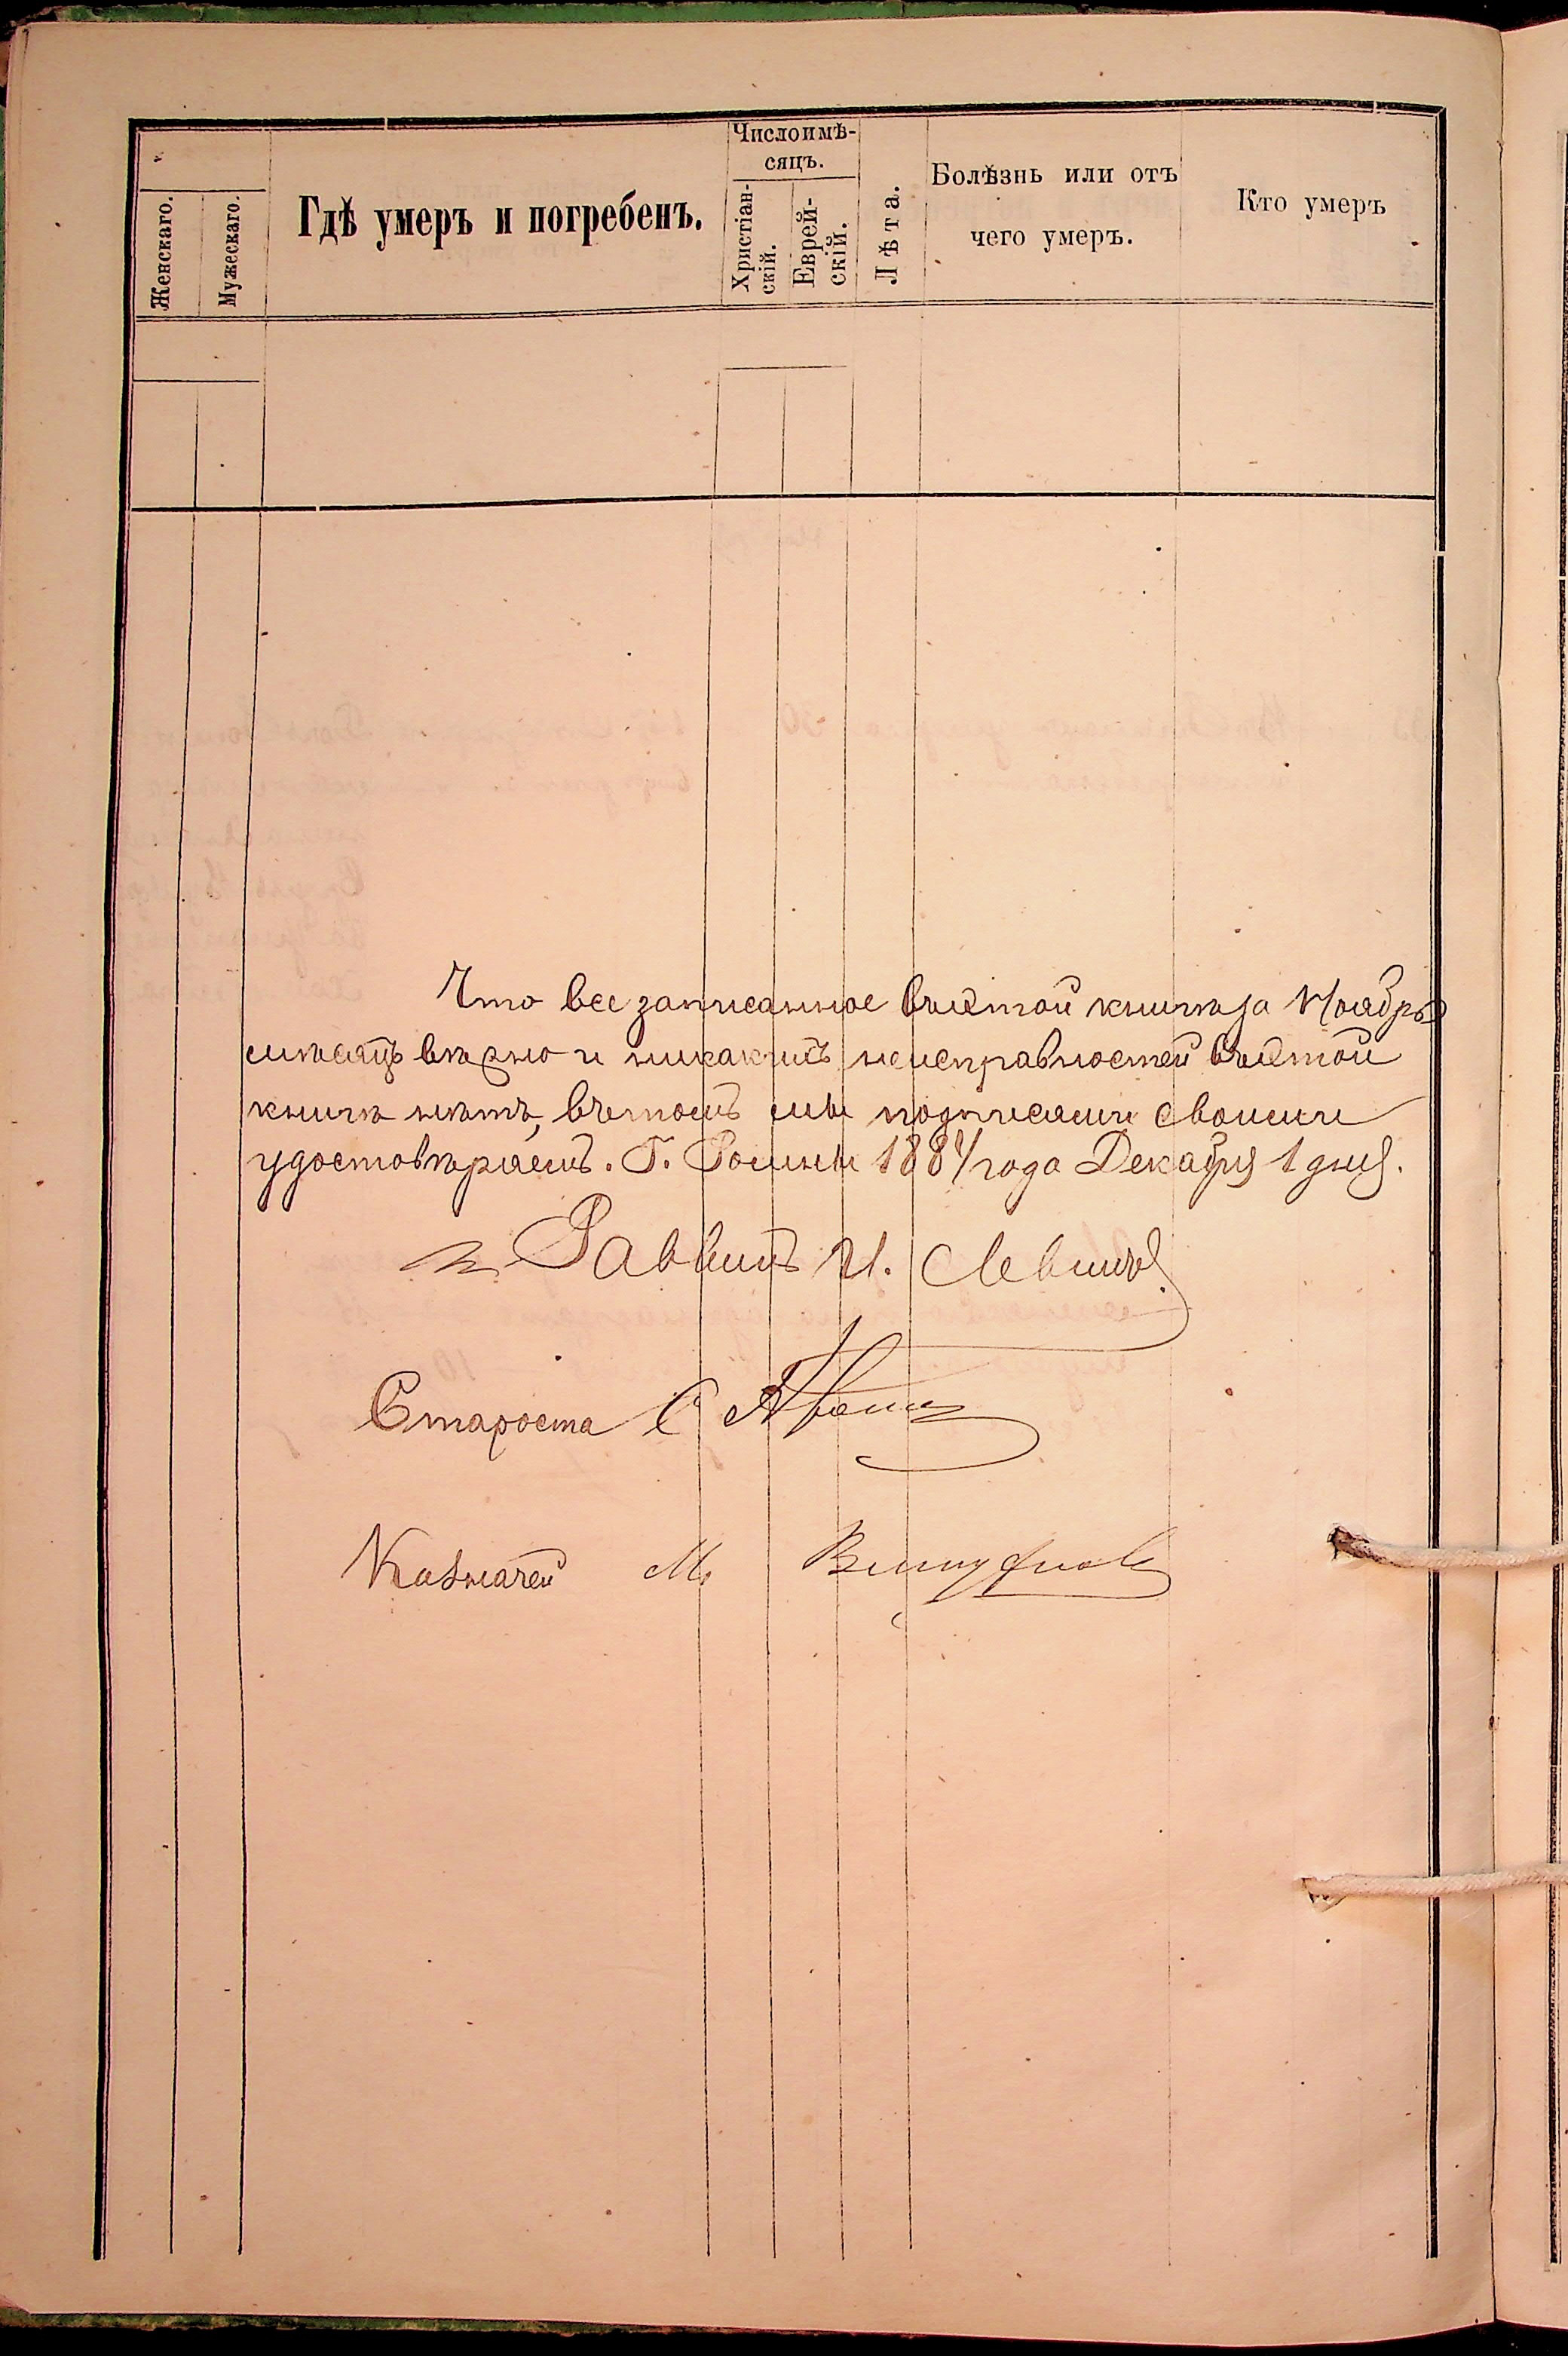 Женскаго.
Мужескаго.
Гдѣ умеръ и погребенъ.
Числоимѣ-
сяцъ.
Христіан-
скій.
Еврей-
скій.
Лѣта.
Болѣзнь или отъ
чего умеръ.
Кто умеръ
Что все записанное въ этой книгѣ за Ноябрь
мѣсяцъ вѣрно и никакихъ неисправностей въ этой
книгѣ нѣтъ, въ томъ мы подписями своими
удостовѣряемъ. Г. Ромны 1884 года Декабря 1 дня.
Раввинъ И. Левинъ
Староста С
Казначей М.